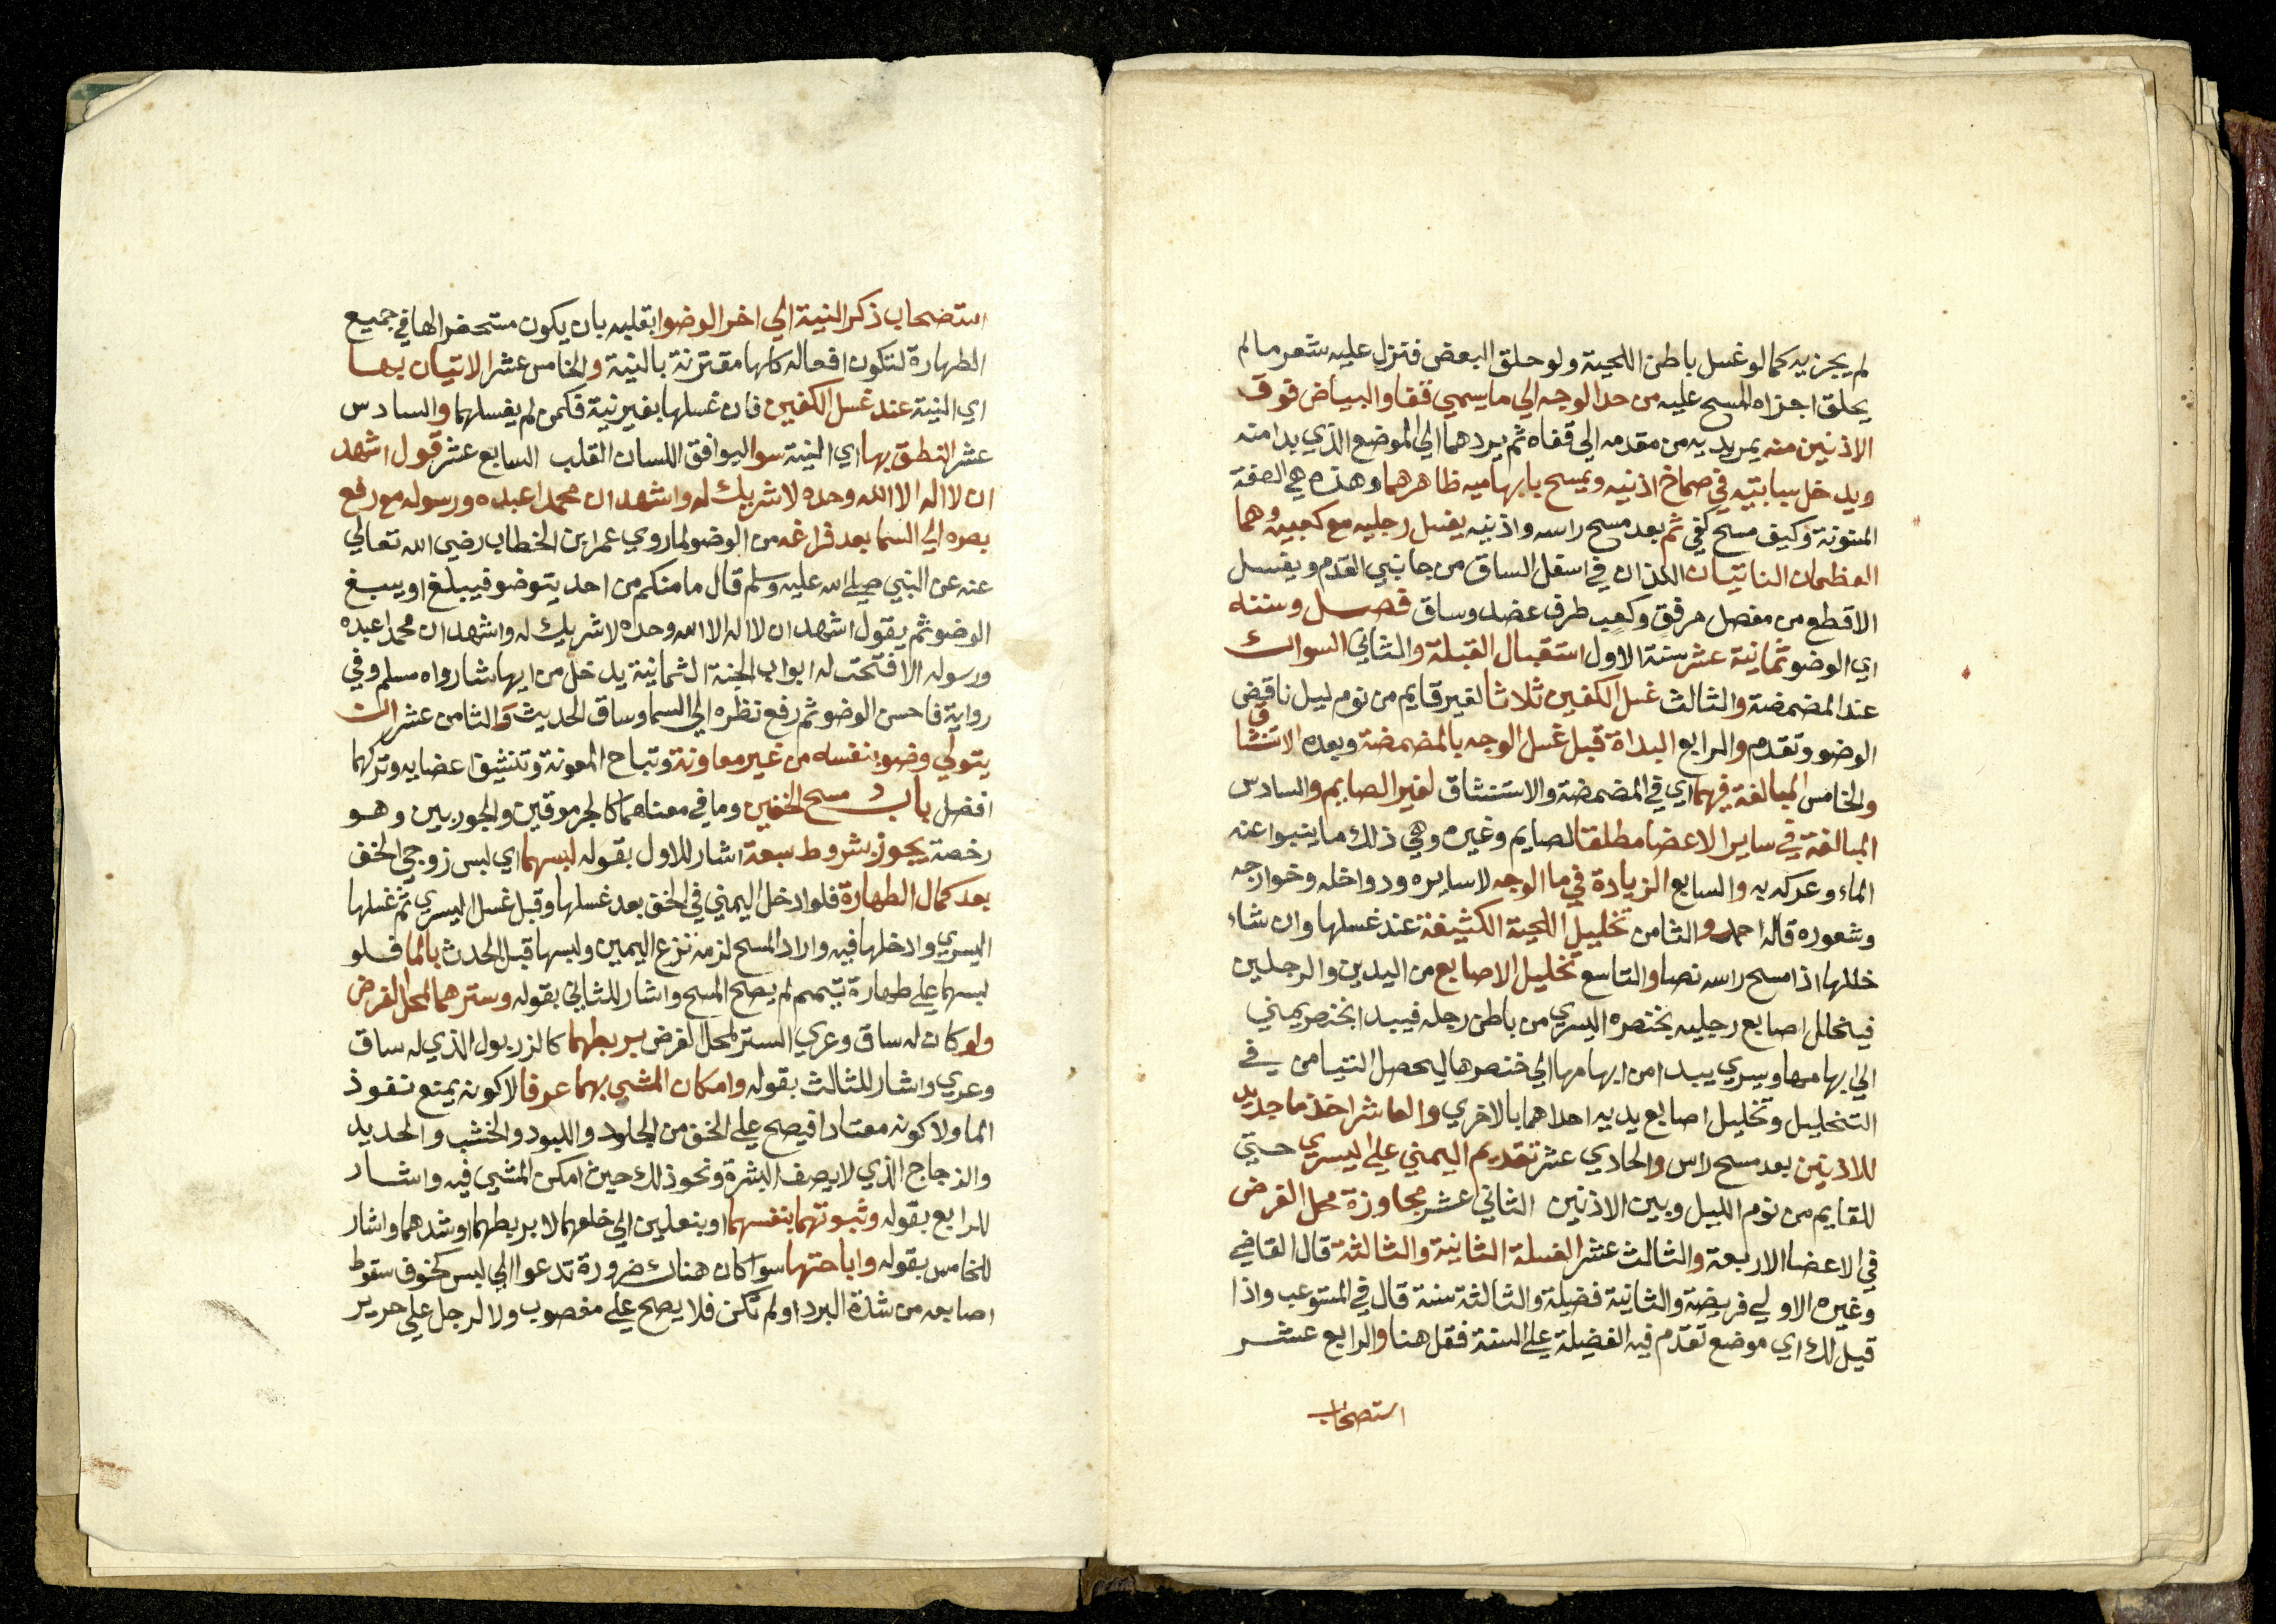 لم يجزيه كمالو غسل باطن اللحية ولو حلق البعض فنزل عليه شعر مالم
يحلق اجزاه المسح عليه من حد الوجه الي ما يسمي قفا والبياض فوق
الاذنين منه يمر يديه من مقدمه الي قفاه ثم يردهما الي الموضع الذي بدا منه
ويدخل سبابتيه في صماخ اذنيه ويمسح بابهاميه ظاهرهما وهذه هي الصفة
المسنونة وكيف مسح كفي ثم بعد مسح راسه واذنيه يغسل رجليه مع كعبيه وهما
العظمان الناتيان اللذان في اسفل الساق من جانبي القدم ويغسل
الاقطع من مفصل مرفق وكعب طرف عضد وساق فصل وسننه
اي الوضو ثمانية عشر سنة الاول استقبال القبلة والثاني السواك
عند المضمضة والثالث غسل الكفين ثلاثا لغير قايم من نوم ليل ناقض
الوضو وتقدم والرابع البداة قبل غسل الوجه بالمضمضة وبعده الاستنشاق
والخامس المبالغة فيهما اي في المضمضة والاستنشاق لغير الصايم والسادس
المبالغة في ساير الاعضا مطلقا لصايم وغيره وهي ذلك ما ينبوا عنه
الماء وعركه به والسابع الزيادة في ما الوجه لاساريره ودواخله وخوارجه
وشعوره قاله احمد والثامن تخليل اللحية الكثيفة عند غسلها وان شاء
خللها اذا مسح راسه نصا والتاسع تخليل الاصابع من اليدين والرجلين
فيخلل اصابع رجليه بخنصره اليسري من باطن رجله فيبدا بخنصر يمني
الي ابهامها ويسري يبدا من ابهامها الي خنصرها ليحصل التيامن في
التخليل وتخليل اصابع يديه احداهما بالاخري والعاشر اخذ ما جديد
للاذنين بعد مسح راس والحادي عشر تقديم اليمني علي اليسري حتي
للقايم من نوم الليل وبين الاذنين الثاني عشر مجاوزة محل الفرض
في الاعضا الاربعة والثالث عشر الغسلة الثانية والثالثة قال القاضي
وغيره الاولي فريضة والثانية فضيلة والثالثة سنة قال في المستوعب واذا
قيل لك اي موضع تقدم فيه الفضيلة علي السنة فقل هنا والرابع عشر
استصحاب
استصحاب ذكر النية الي اخر الوضوا بقلبه بان يكون مستحضرا لها في جميع
الطهارة لتكون افعاله كلها مقترنة بالنية والخامس عشر الاتيان بها
اي النية عند غسل الكفين فان غسلها بغير نية فكمن لم يغسلهما والسادس
عشر النطق بها اي النية سوا ليوافق اللسان القلب السابع عشر قول اشهد
ان لا اله الا الله وحده لا شريك له واشهد ان محمدا عبده ورسوله مع رفع
بصره الي السما بعد فراغه من الوضو لما روي عمر ابن الخطاب رضي الله تعالي
عنه عن النبي صلي الله عليه وسلم قال ما منكم من احد يتوضو فيبلغ او يسبغ
الوضو ثم يقول اشهد ان لا اله الا الله وحده لا شريك له واشهد ان محمدا عبده
ورسوله الا فتحت له ابواب الجنة الثمانية يدخل من ايها شا رواه مسلم وفي
رواية فاحسن الوضو ثم رفع نظره الي السما وساق الحديث والثامن عشر ان
يتولي وضوه بنفسه من غير معاونة وتباح المعونة وتنشيف اعضايه وتركهما
افضل باب مسح الخفين وما في معناهما كالجرموقين والجوربين وهو
رخصة يجوز بشروط سبعة اشار للاول بقوله لبسهما اي لبس زوجي الخف
بعد كمال الطهارة فلو ادخل اليمني في الخف بعد غسلها وقبل غسل اليسري ثم غسلها
اليسري وادخلها فيه واراد المسح لزمه نزع اليمين ولبسها قبل الحدث بالما فلو
لبسهما علي طهارة تيمم لم يصح المسح واشار للثاني بقوله وسترهما لمحل الفرض
ولو كان له ساق وعري الستر لمحل الفرض بربطهما كالزربول الذي له ساق
وعري واشار للثالث بقوله وامكان المشي بهما عرفا لا كونه يمنع نفوذ
الما ولا كونه معتادا فيصح علي الخف من الجلود واللبود والخشب والحديد
والزجاج الذي لا يصف البشرة ونحو ذلك حين امكن المشي فيه واشار
للرابع بقوله وثبوتهما بنفسهما او بنعلين الي خلعهما لا بربطهما او شدهما واشار
للخامس بقوله واباحتهما سوا كان هناك ضرورة تدعوا الي لبس كخوف سقوط
اصابعه من شدة البرد او لم تكن فلا يصح علي مغصوب ولا لرجل علي حرير